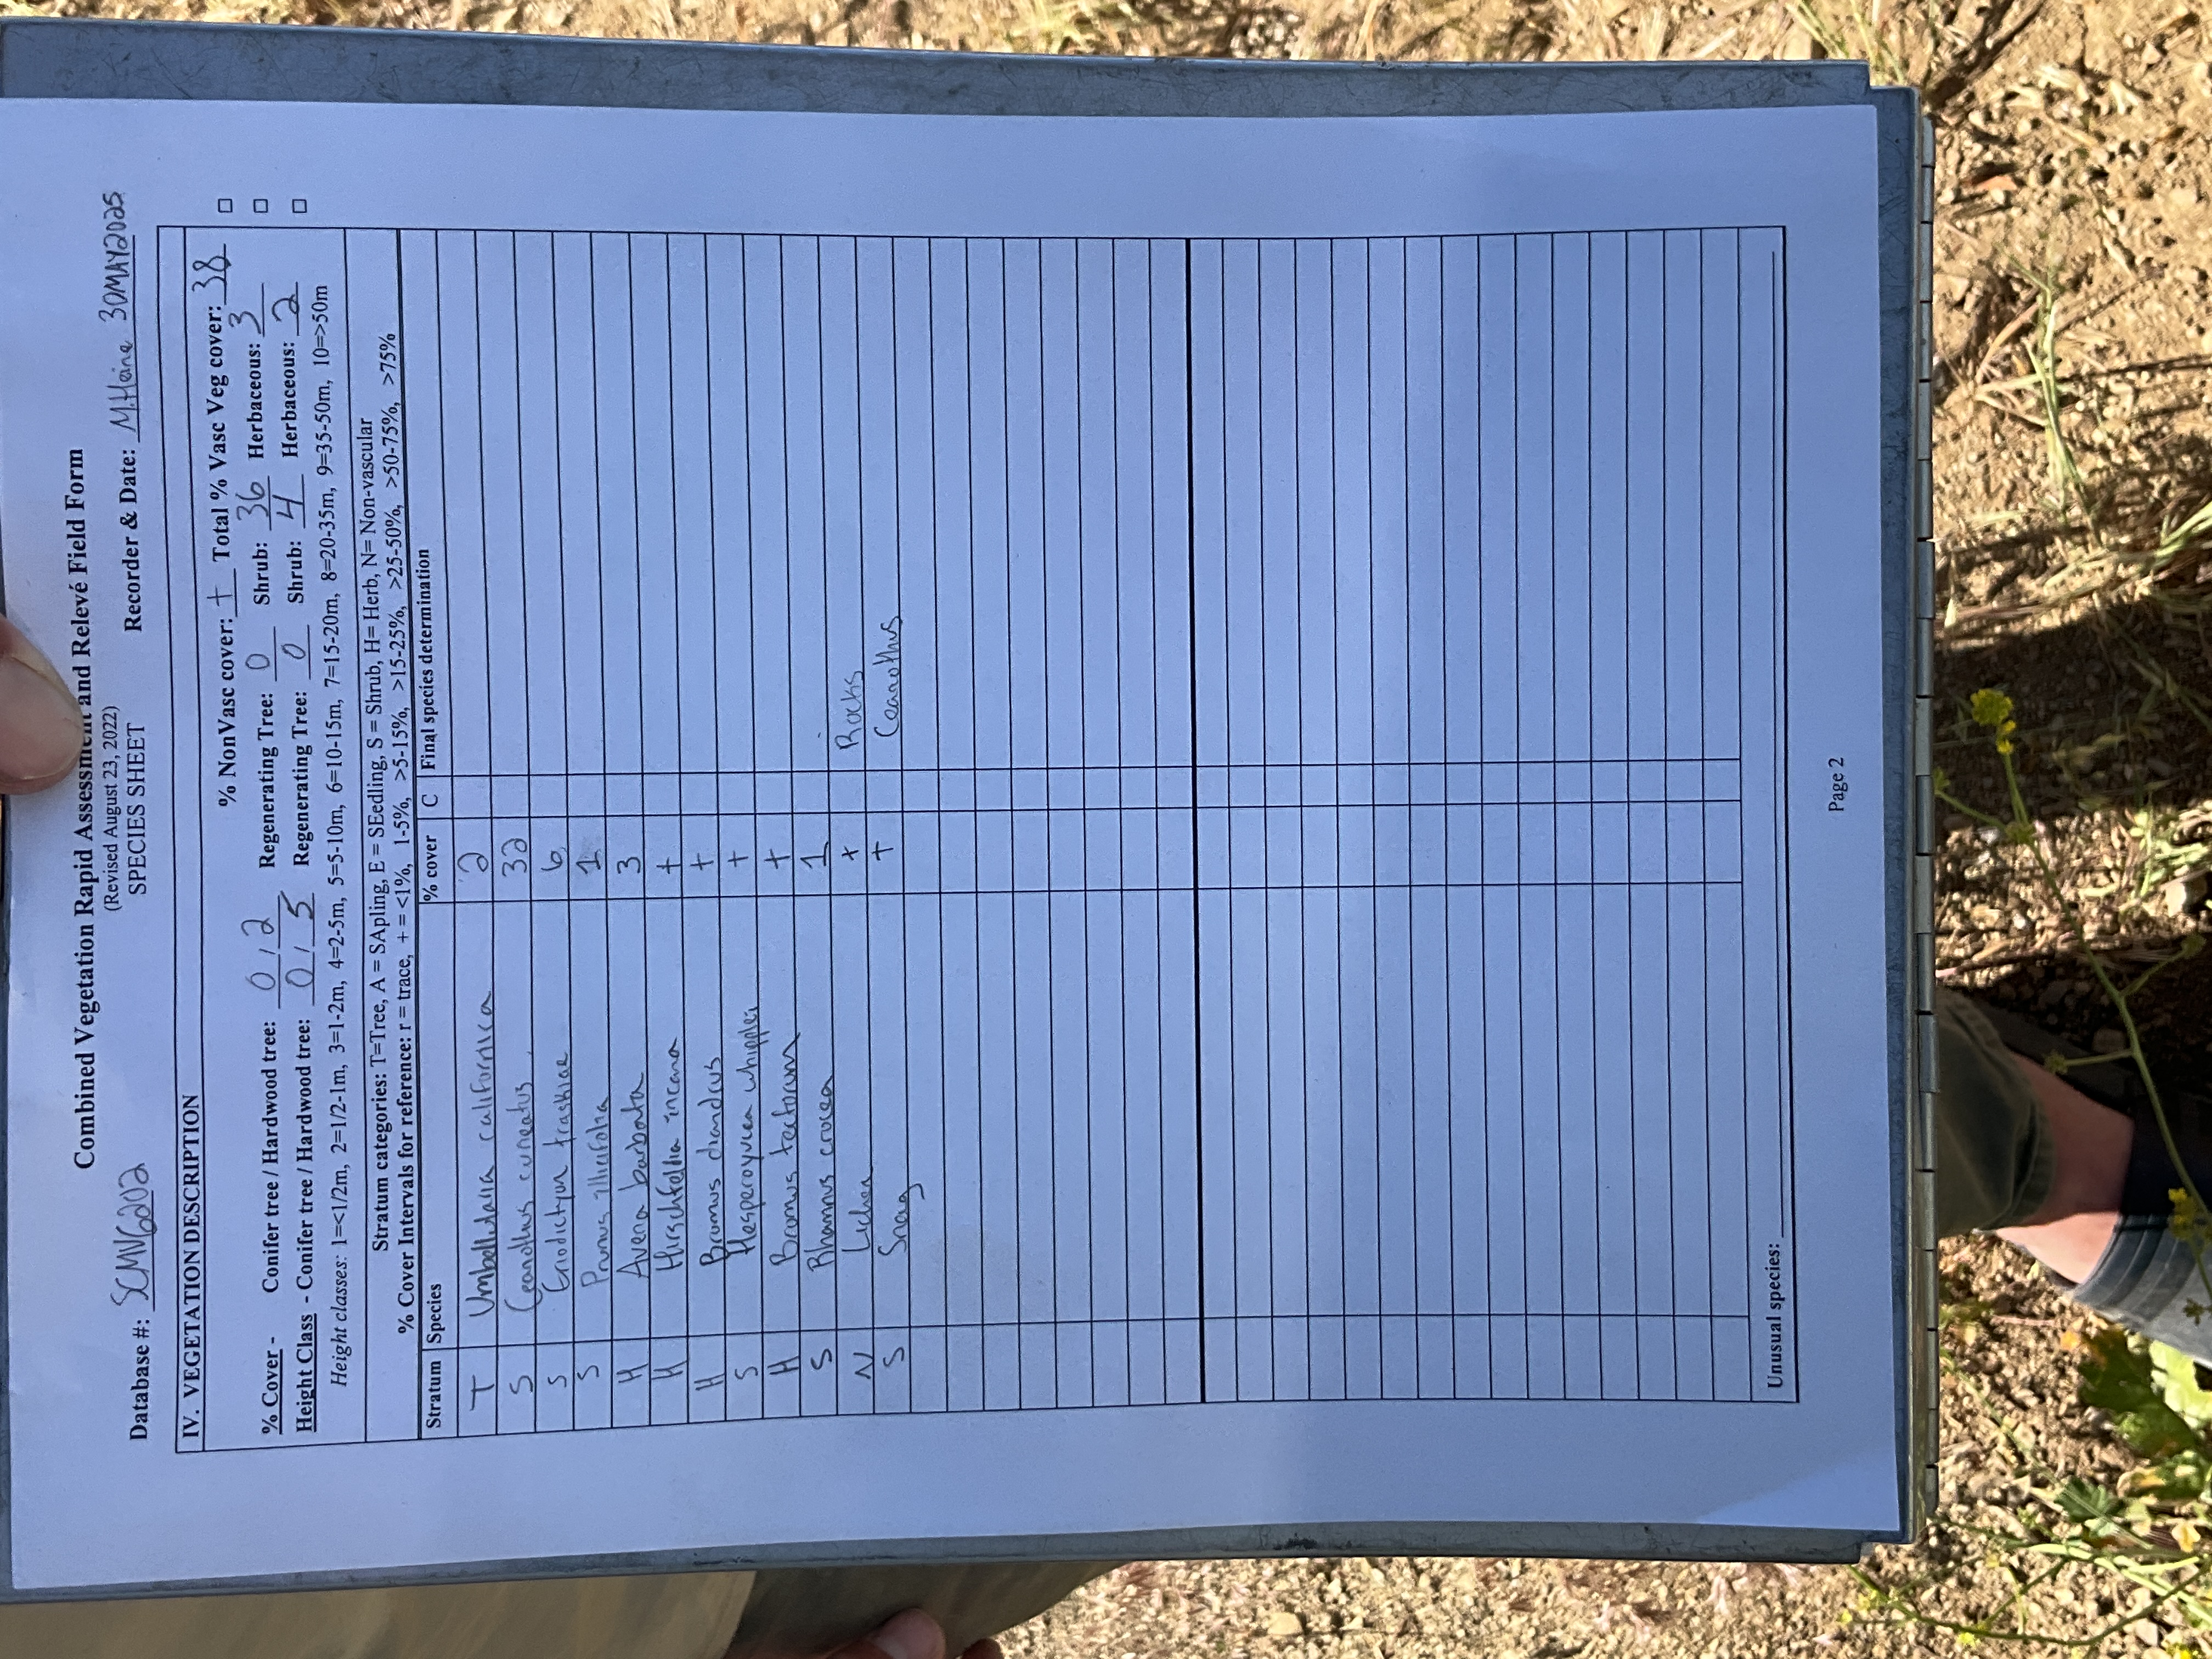 Combined Vegetation Rapid Assessment and Relevé Field Form
(Revised August 23, 2022)
SPECIES SHEET
Database #: SCMV6202 Recorder & Date: M.Heine 30MAY2025
IV. VEGETATION DESCRIPTION
% NonVasc cover: + Total % Vasc Veg cover: 38
% Cover - Conifer tree / Hardwood tree: 0 / 2 Regenerating Tree: 0 Shrub: 36 Herbaceous: 3
Height Class - Conifer tree / Hardwood tree: 0 / 5 Regenerating Tree: 0 Shrub: 4 Herbaceous: 2
Height classes: 1=<1/2m, 2=1/2-1m, 3=1-2m, 4=2-5m, 5=5-10m, 6=10-15m, 7=15-20m, 8=20-35m, 9=35-50m, 10=>50m
Stratum categories: T=Tree, A = SApling, E = SEedling, S = Shrub, H= Herb, N= Non-vascular
% Cover Intervals for reference: r = trace, + = <1%, 1-5%, >5-15%, >15-25%, >25-50%, >50-75%, >75%
Stratum Species % cover C Final species determination
T Umbellularia californica 2
S Ceanothus cuneatus 32
S Eriodictyon traskiae 6
S Prunus ilicifolia 1
H Avena barbata 3
H Hirschfeldia incana +
H Bromus diandrus +
S Hesperoyucca whipplei +
H Bromus tectorum +
S Rhamnus crocea 1
N Lichen + Rocks
S Snag + Ceanothus
Unusual species:
Page 2